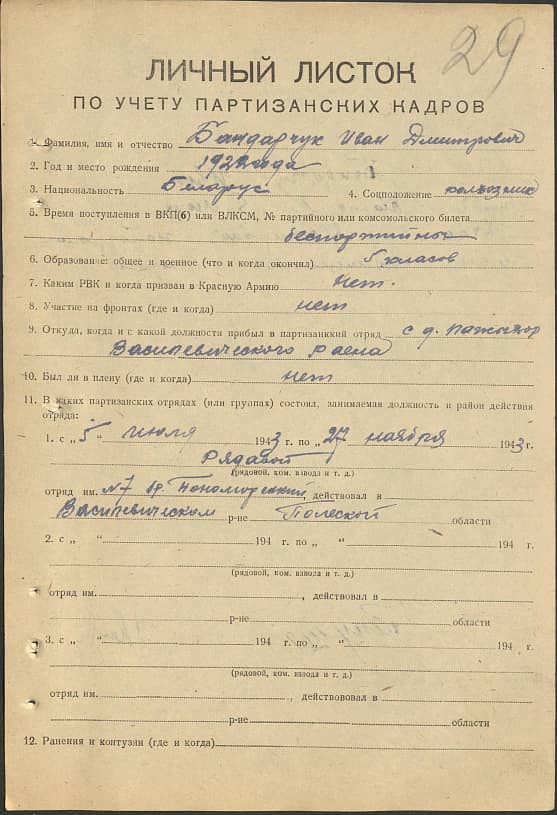 29
ЛИЧНЫЙ ЛИСТОК
ПО УЧЕТУ ПАРТИЗАНСКИХ КАДРОВ
1. Фамилия, имя и отчество Бандарчук Иван Дмитрович
2. Год и место рождения 1922 года
3. Национальность Беларус 4. Соцположение колхозник
5. Время поступления в ВКП(б) или ВЛКСМ, № партийного или комсомольского билета
беспартийный
6. Образование: общее и военное (что и когда окончил) 5 класов
7. Каким РВК и когда призван в Красную Армию Нет.
8. Участие на фронтах (где и когда) нет
9. Откуда, когда и с какой должности прибыл в партизанкий отряд с д.
Василевического раена
10. Был ли в плену (где и когда) нет
11. В каких партизанских отрядах (или группах) состоял, занимаемая должность и район действия
отряда:
1. с „ 5 “ июля 1943 г. по „ 27 “ ноября 1943 г.
Рядавой
(рядовой, ком. взвода и т. д.)
отряд им. №7 бр. Пономоренкий, действовал в
Василевическом р-не Полеской области
2. с „ “ 194 г. по „ “ 194 г.
(рядовой, ком. взвода и т. д.)
отряд им. , действовал в
р-не области
3. с „ “ 194 г. по „ “ 194 г.
(рядовой, ком. взвода и т. д.)
отряд им. , действововал в
р-не области
12. Ранения и контузии (где и когда)